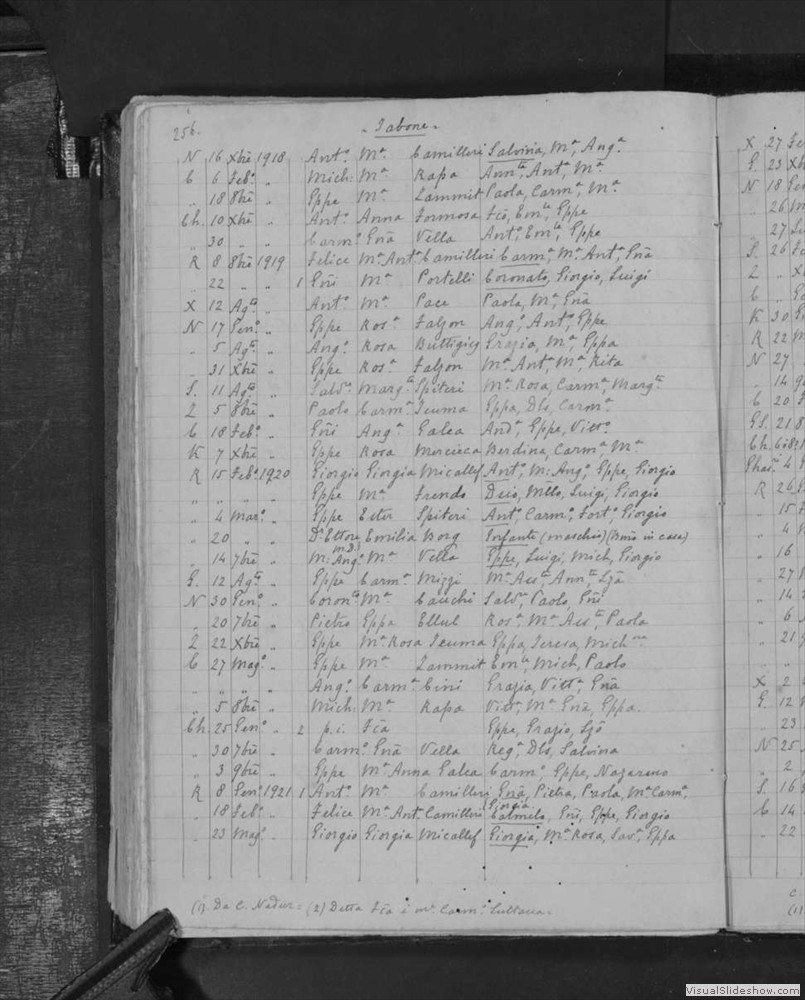 256. - Tabone -
N 16 Xbre 1918 Ant.o M.a Camilleri Salvina, M.a Ang.a
C 6 Feb.o „ Mich: M.a Rapa Ann.ta, Ant.a, M.a
„ 18 8bre „ Eppe M.a Zammit Paola, Carm.a, M.a
Ch. 10 Xbre „ Ant.o Anna Formosa Fco, Em.le, Eppe
„ 30 „ „ Carm.o Gna Vella Ant.o, Em.le, Eppe
R 8 8bre 1919 Felice M.a Ant.a Camilleri Carm.a, M.a Ant.a, Gna
„ 22 „ „ 1 Gni M.a Portelli Coronato, Giorgio, Luigi
X 12 Ag.to „ Ant.o M.a Pace Paola, M.a, Gna
N 17 Gen.o „ Eppe Ros.a Falzon Ang.o, Ant.o, Eppe
„ 5 Ag.to „ Ang.o Rosa Buttigieg Grazia, M.a, Eppa
„ 31 Xbre „ Eppe Ros.a Falzon M.a Ant.a, M.a, Rita
S. 11 Ag.to „ Salv.o Marg.ta Spiteri M.a Rosa, Carm.a, Marg.ta
Z 5 8bre „ Paolo Carm.a Xeuma Eppa, Dls, Carm.a
C 18 Feb.o „ Gni Ang.a Galea And.a, Eppe, Vitt.o
K 7 Xbre „ Eppe Rosa Mercieca Berdina, Carm.a, M.a
R 15 Feb.o 1920 Giorgio Giorgia Micallef Ant.o, M: Ang.o, Eppe, Giorgio
„ „ „ „ Eppe M.a Frendo Luigi, Giorgio
„ 4 Mar.o „ Eppe Ester Spiteri Ant.o, Carm.o, Fort.o, Giorgio
„ 20 „ „ Dr Ettore Emilia Borg Infante (maschio) (Bmo in casa)
„ 14 7bre „ M: Ang.o (M.D.) M.a Vella Eppe, Luigi, Mich, Giorgio
G. 12 Ag.to „ Eppe Carm.a Mizzi M.a Ass.ta, Ann.ta, Lza
N 30 Gen.o „ Coron.to M.a Cauchi Salv.o, Paolo, Gni
„ 20 7bre „ Pietro Eppa Ellul Ros.a, M.a Ass.ta, Paola
Z 22 Xbre „ Eppe M.a Rosa Xeuma Eppa, Teresa, Mich.na
C 27 Mag.o „ Eppe M.a Zammit Em.le, Mich, Paolo
„ „ „ „ Ang.o Carm.a Cini Grazia, Vitt.a, Gna
„ 5 8bre „ Mich: M.a Rapa Vitt.a, M.a Gna, Eppa.
Ch. 25 Gen.o „ 2 p.i. Fca Eppe, Grazio, Lzo
„ 30 7bre „ Carm.o Gna Vella Reg.a, Dls, Salvina
„ 3 9bre „ Eppe M.a Anna Galea Carm.o, Eppe, Nazareno
R 8 Gen.o 1921 1 Ant.o M.a Camilleri Gna, Pietra, Paola, M.a Carm.a
„ 18 Feb.o „ Felice M.a Ant.a Camilleri Giorgia Carmelo, Gni, Eppe, Giorgio
„ 23 Mag.o „ Giorgio Giorgia Micallef Giorgia, M.a Rosa, Eppa
(1) Da C. Nadur = (2) Detta Fca è Carm.o Sultana =
X 27
G. 23 Xb
N 18
„ 26 M
„ 27
S. 26
Z „ X
C „
K 30
R 22
N 27
„ 14
C 20
GS. 21 8
Ch.
4
R 26
„ 15
„ 4
„ 16
„ 27
„ 14
„ 6
„ 21
X 2
G. 12
23
N 25
„ 2
S. 16
C 14
„ 22
C.
(1)
VisualSlideshow.com